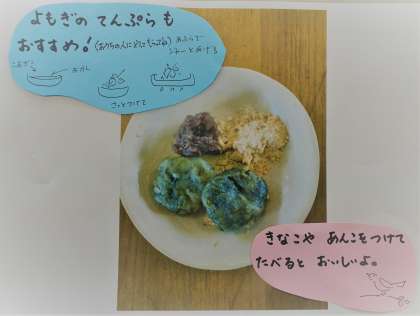 よもぎの てんぷら も
おすすめ!(おうちの人にあげてもらってね) あぶらで
ジャーとあげる
こむぎこ
おかし
さっとつけて
きなこや あんこをつけて
たべると おいしいよ。